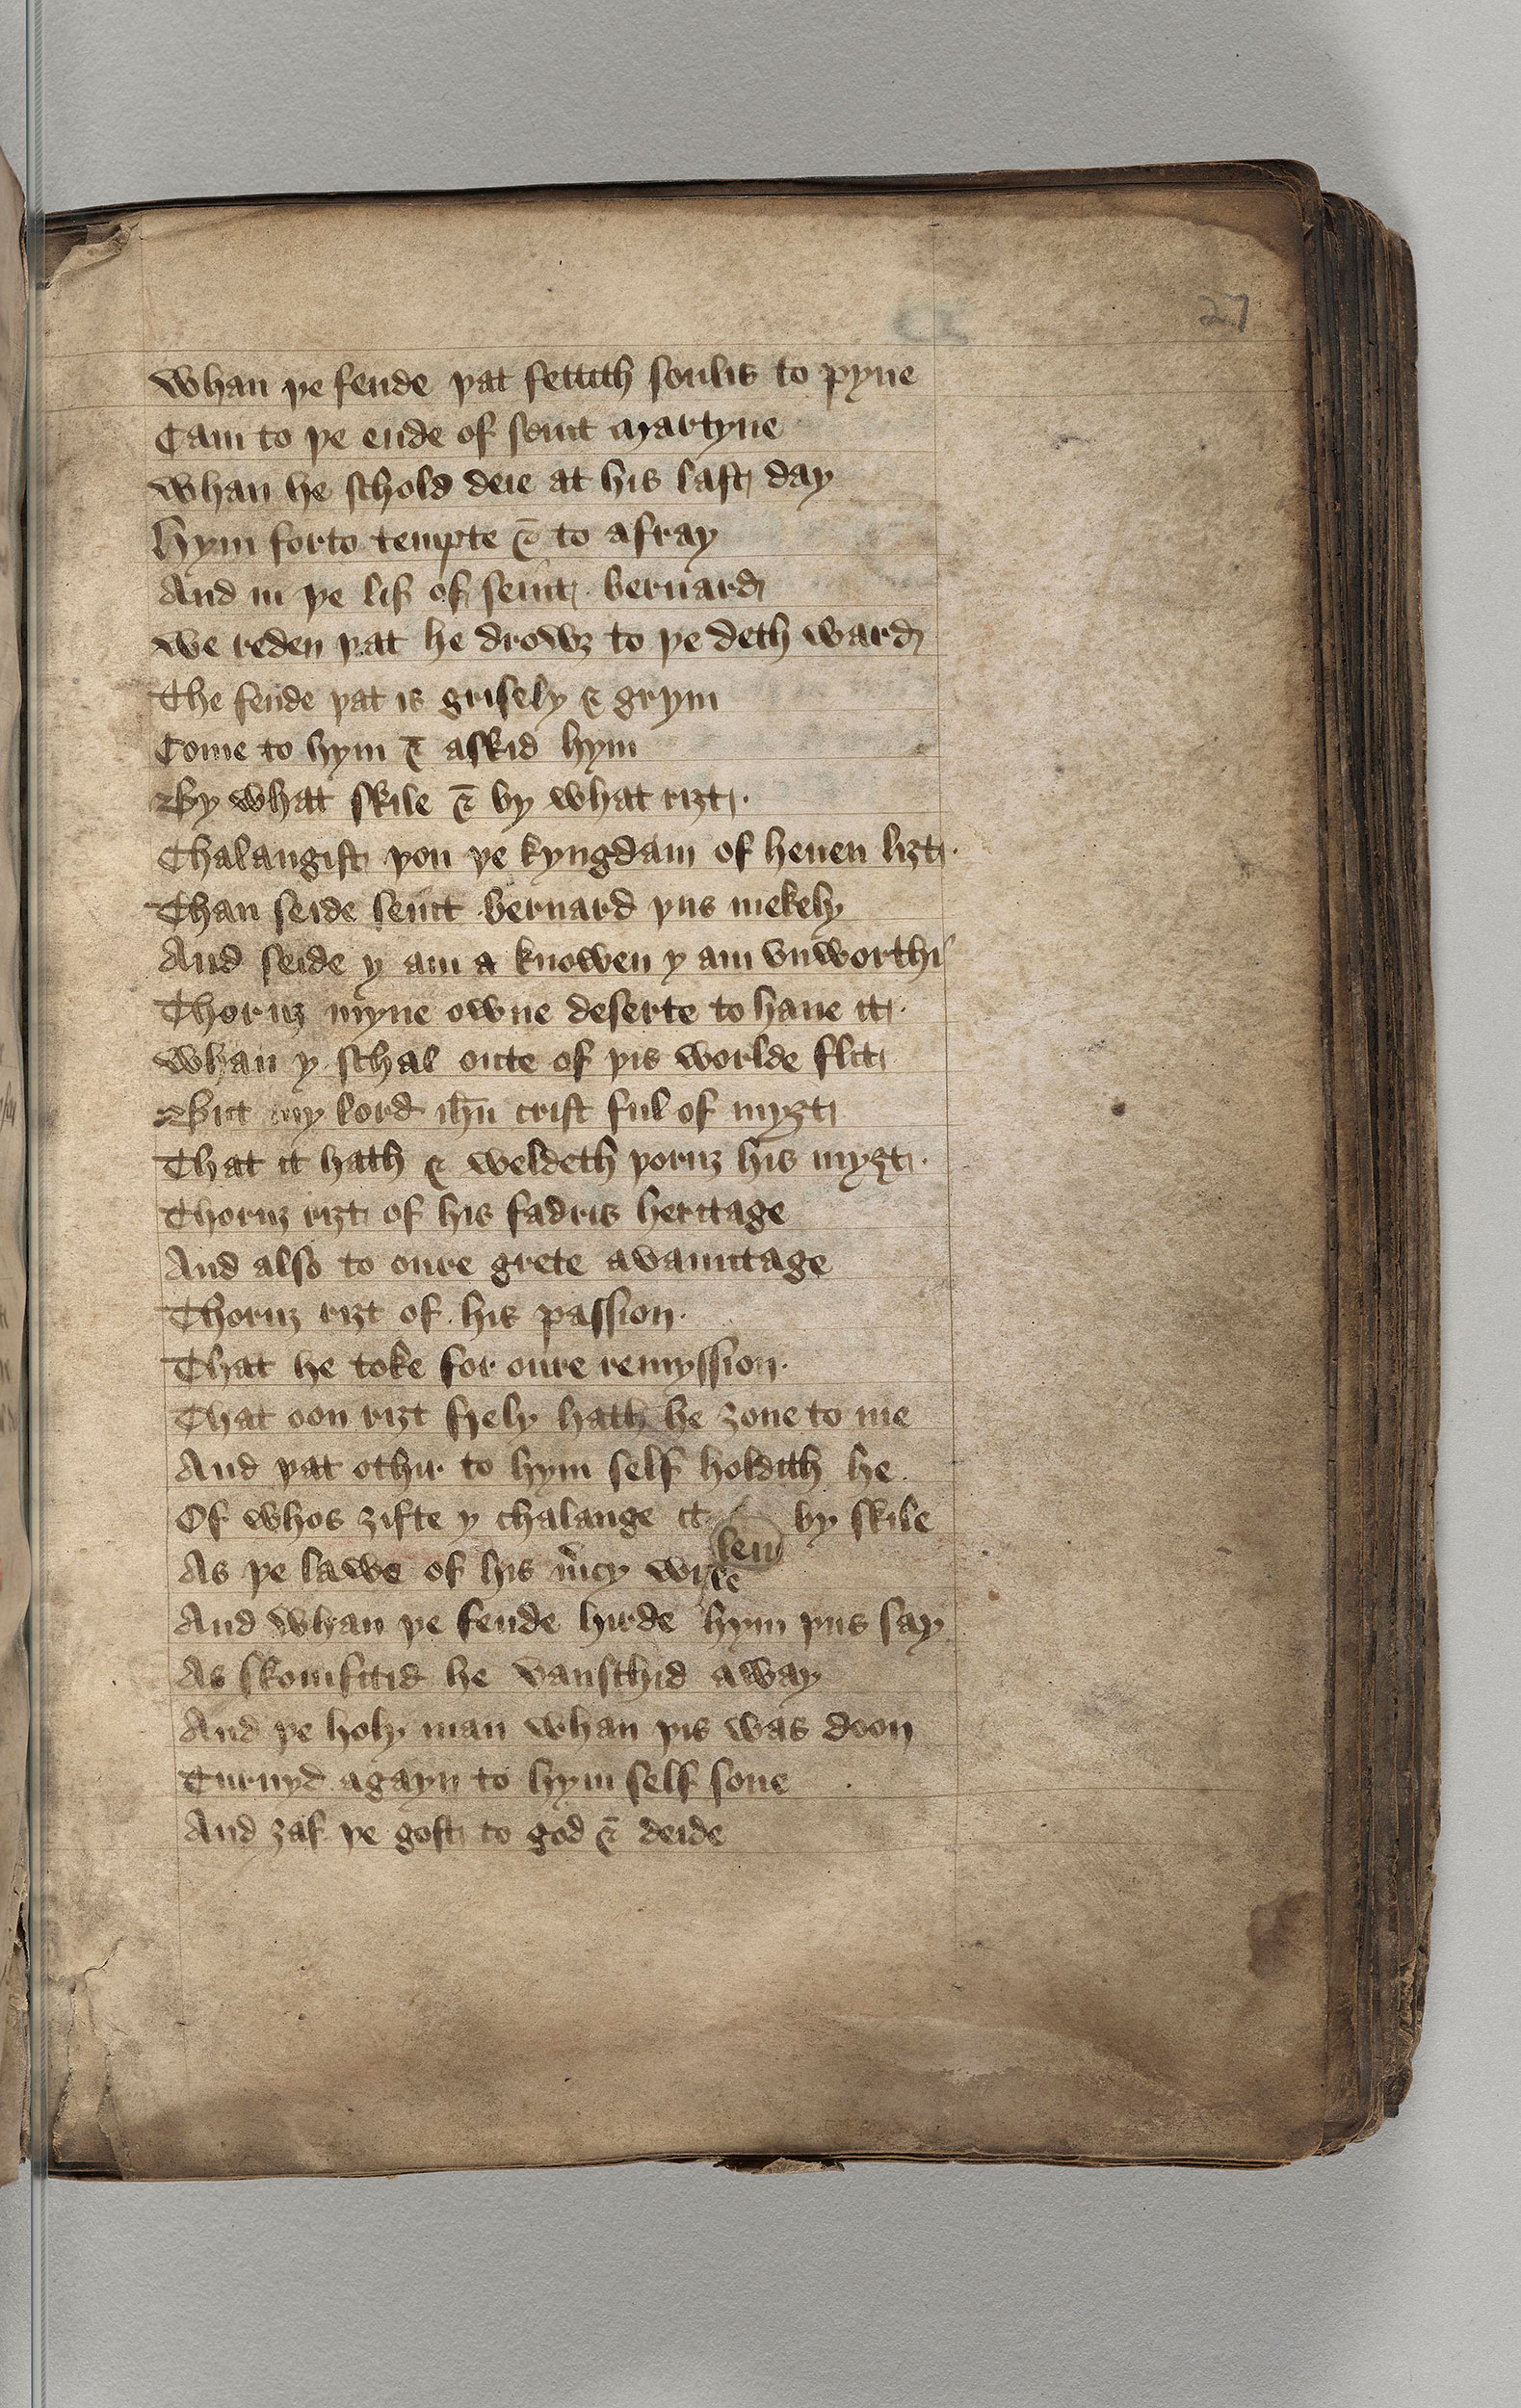 27
Whan þe fende þat fettith soulis to pyne
Cam to þe ende of seint martyne
Whan he schold deie at his last day
Hym forto tempte & to afray
And in þe lif of seint bernard
We reden þat he drowȝ to þe deth ward
The fende þat is grisely & grym
Come to hym & askid hym
By what skile & by what riȝt.
Chalangist þou þe kyngdam of heuen liȝt.
Than seide seint bernard þus mekely
And seide y am a knowen y am vnworthi
Thoruȝ myne owne deserte to haue it.
Whan y schal oute of þis worlde flit
But my lord ihu crist ful of myȝt
That it hath & weldeth þoruȝ his myȝt.
Thoruȝ riȝt of his fadris heritage
And also to oure grete avauntage
Thoruȝ riȝt of his passion.
That he toke for oure remyssion.
That oon riȝt frely hath he ȝoue to me
And þat othir to hym self holdith he
Of whos ȝifte y chalange it by skile
As þe lawe of his mcy wile
And whan þe fende hirde hym þus say
As skomfitid he vanschid away
And þe holy man whan þis was doon
Turnyd agayn to hym self sone
And ȝaf þe gost to god & deide